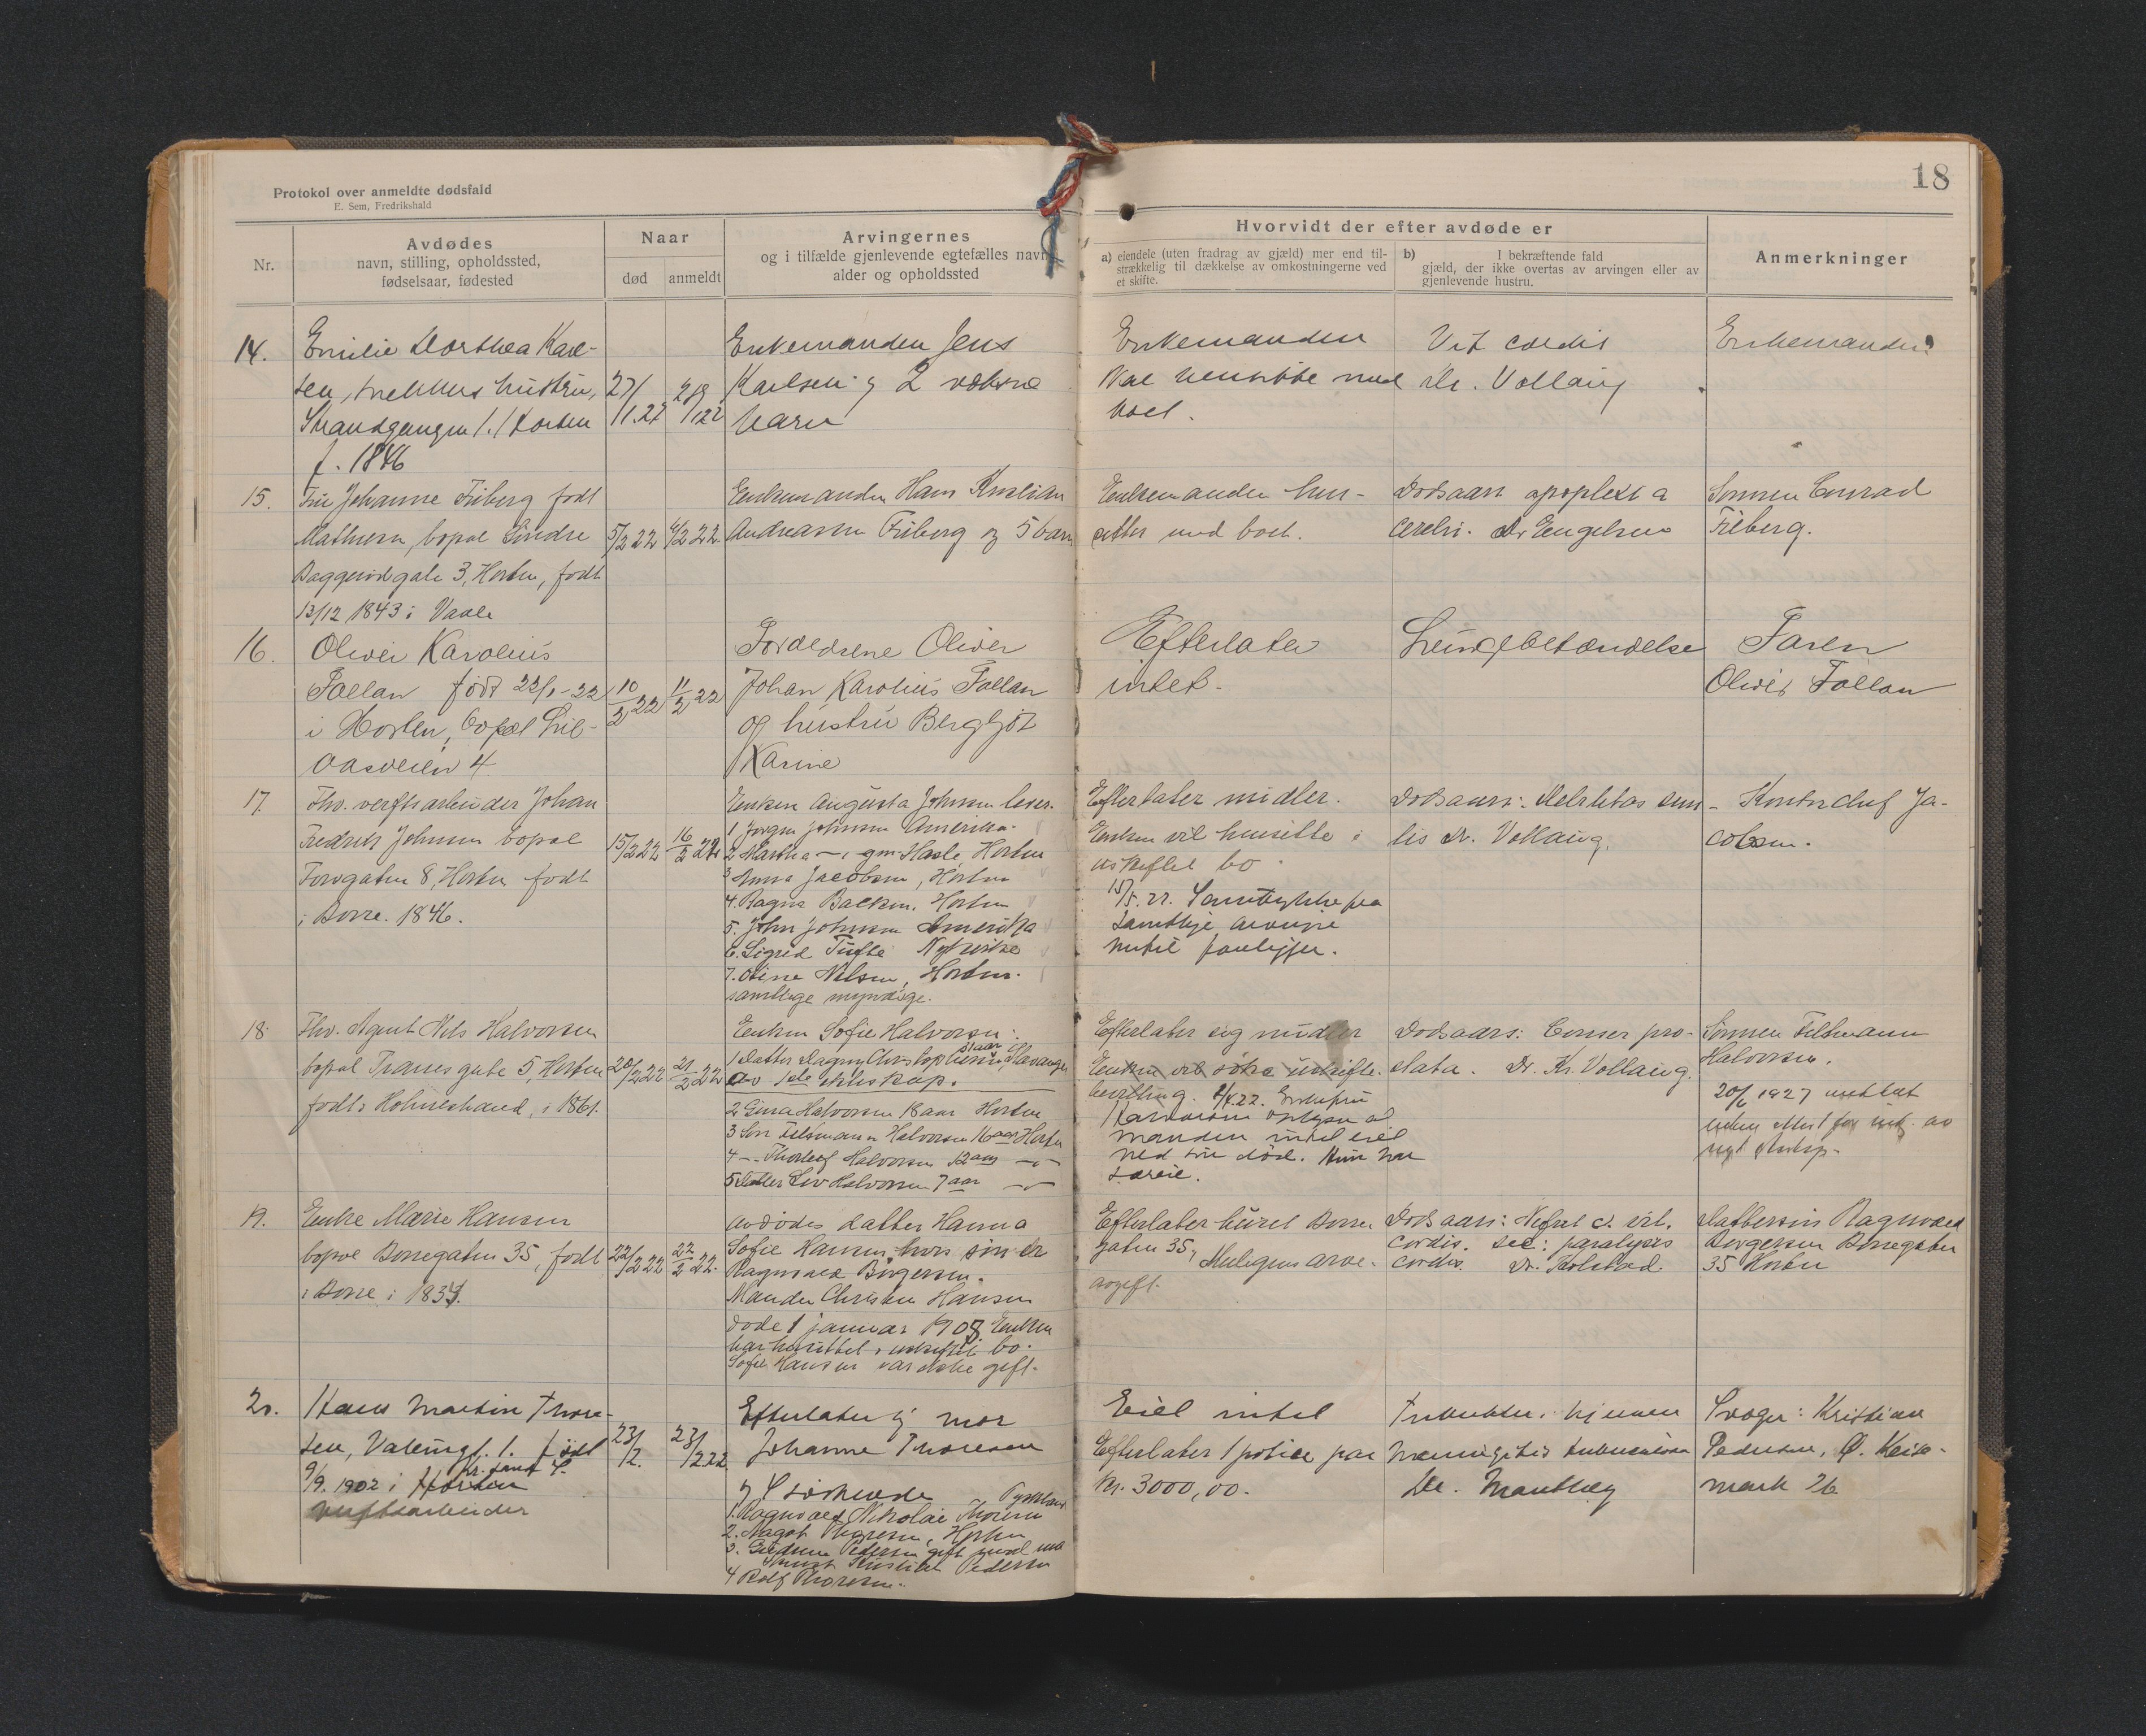 18
Protokol over anmeldte dødsfald
E. Sem, Fredrikshald
Nr.
Avdødes
navn, stilling, opholdssted,
fødselsaar, fødested
Naar
død
anmeldt
Arvingernes
og i tilfælde gjenlevende egtefælles navn
alder og opholdssted
Hvorvidt der efter avdøde er
a) eiendele (uten fradrag av gjæld) mer end til-
strækkelig til dækkelse av omkostningerne ved
et skifte.
b) I bekræftende fald
gjæld, der ikke overtas av arvingen eller av
gjenlevende hustru.
Anmerkninger
14.
Emilie Dorthea Karl-
sen, hustru,
Strandgangen 1. Horten
f. 1846
27/
1.22
28/
1 22
Enkemanden Jens
Karlsen og 2 voksne
barn
Enkemanden
vil hensidde med
boet.
Vit cordis
Dr. Vollaug
Enkemanden
15.
Fru Johanne Friberg født
Mathisen, bopæl Søndre
Baggerødgate 3, Horten, født
13/12 1843 i Vaale
5/2 22
6/2 22
Enkemanden Hans Kristian
Andreassen Friberg og 5 barn
Enkemanden hen-
sitter med boet.
Dødsaars apoplexia
cerebri. Dr Engelsen
Sønnen Conrad
Friberg.
16.
Oliver Karolius
Follan født 22/1-22
i Horten, bopæl Lil-
aasveien 4
10/2 22
11/2 22
Forældrene Oliver
Johan Karolius Follan
og hustru Bergljot
Karine
Efterlater
intet.
Lungebetændelse
Faren
Oliver Follan
17.
Fhv. verftsarbeider Johan
Fredrik Johnsen bopæl
Forvgaten 8, Horten født
i Borre. 1846.
15/2 22
16/2 22
Enken Augusta Johnsen lever.
1 Jørgen Johnsen Amerika.
2 Martha - gm. Hasle, Horten
3 Anna Jacobsen, Horten
4. Ragna Backen. Horten
5. John Johnsen Amerika
6. Sigrid Tufte
7. Oline Nilsen, Horten.
samtlige myndige.
Efterlater midler.
Enken vil hensitte i
uskiftet bo.
15/5.22. Samtykke fra
samtlige arvinger
foreligger.
Dødsaars: Melletus sen-
lis Dr. Vollaug.
Kontorchef Ja-
cobsen.
18.
Fhv. Agent Nils Halvorsen
bopæl Tranesgate 5, Horten
født i Holmestrand, i 1861.
20/2 22
21/2 22
Enken Sofie Halvorsen:
1 Datter Dagny Christophersen, Stavanger
av 1ste ekteskap.
2 Gina Halvorsen 18 aar Horten
3 Søn Feltmann Halvorsen 16 aar Horten
4 -- Thorleif Halvorsen 12 aar -"-
5 Datter Liv Halvorsen 7 aar -"-
Efterlater sig midler
Enken vil søke uskifte-
bevilling. 2/4.22. Enkefru
Halvorsen oplyser at
manden intet eiet
ved sin død. Hun har
særeie.
Dødsaars: Cancer pro-
stata. Dr. Kr. Vollaug.
Sønnen Feltmann
Halvorsen.
20/6 1927
av
nyt
19.
Enke Marie Hansen
bopæl Borregaten 35, født
i Borre i 1834.
22/2 22
22/2 22.
Avdødes datter Hanna
Sofie Hansen hvis søn er
Ragnvald Børgersen.
Manden Christen Hansen
døde 1 januar 1908. Enken
har hensittet i uskiftet bo.
Sofie Hansen var ikke gift.
Efterlater huset Borre
gaten 35, Muligens arve-
avgift.
Dødsaars: Nefrit c. vit.
cordis. sec: paralysis
cordis. Dr. Tolstad.
Dattersøn Ragnvald
Børgersen Borregaten
35 Horten
20.
Hans Martin Thore-
sen, 1. født
9/9. 1902 i Horten
verftsarbeider
23/
/2.
23/
/2.22
Efterlater sig mor
Johanne Thoresen
og 4 søskende
Tyskland
1. Ragnvald Nikolai Thoresen
2. Magot Thoresen, Horten
3. Gudrun Pedersen gift med
Kristian Pedersen
4 Rolf Thoresen.
Eiet intet
Efterlater 1 police paa
kr. 3000,00.
Dr.
Svoger: Kristian
Pedersen, Ø. Kein-
mark 26